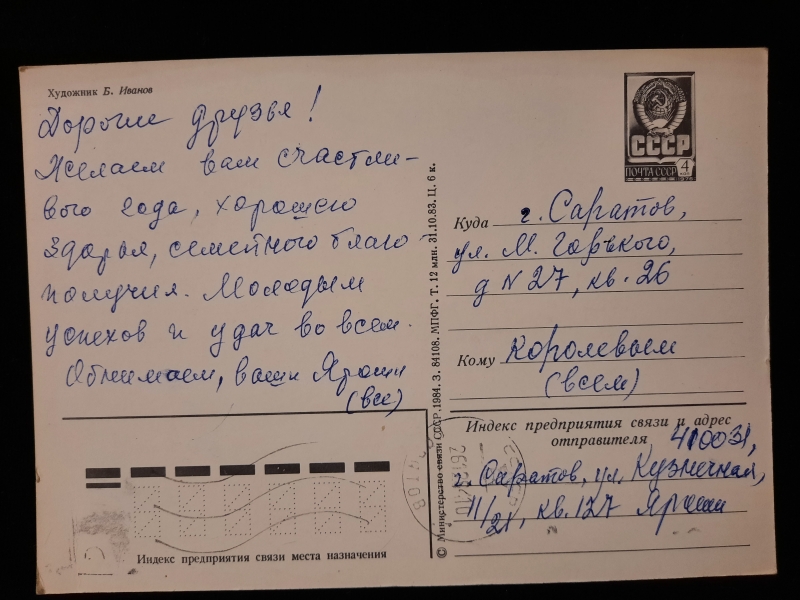 Художник Б. Иванов
Дорогие друзья!
Желаем вам счастли-
вого года, хорошего
здоровья, семейного благо
получия. Молодым
успехов и удач во всем.
Обнимаем, ваши
(все)
СССР
ПОЧТА СССР
4
Куда г. Саратов,
ул. М. Горького,
д N 27, кв. 26
Кому Королевым
(всем)
Индекс предприятия связи и адрес
отправителя 410031,
г. Саратов, ул. Кузнечная,
11/21, кв. 127
© Министерство связи СССР. 1984. З. 84108. МПФГ. Т. 12 млн. 31.10.83. Ц. 6 к.
Индекс предприятия связи места назначения